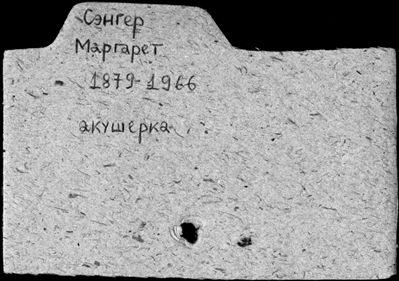 Сэнгер
Маргарет
1879-1966
акушерка